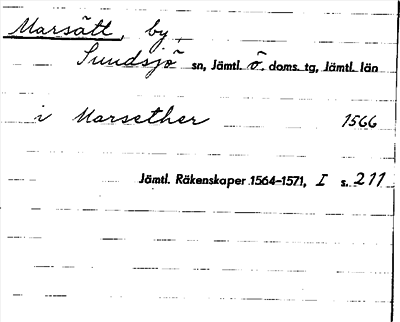 Marsätt, by,
Sundsjö sn, Jämtl. ö. doms. tg, Jämtl. län
i Marsether 1566
Jämtl. Räkenskaper 1564–1571, I s. 211